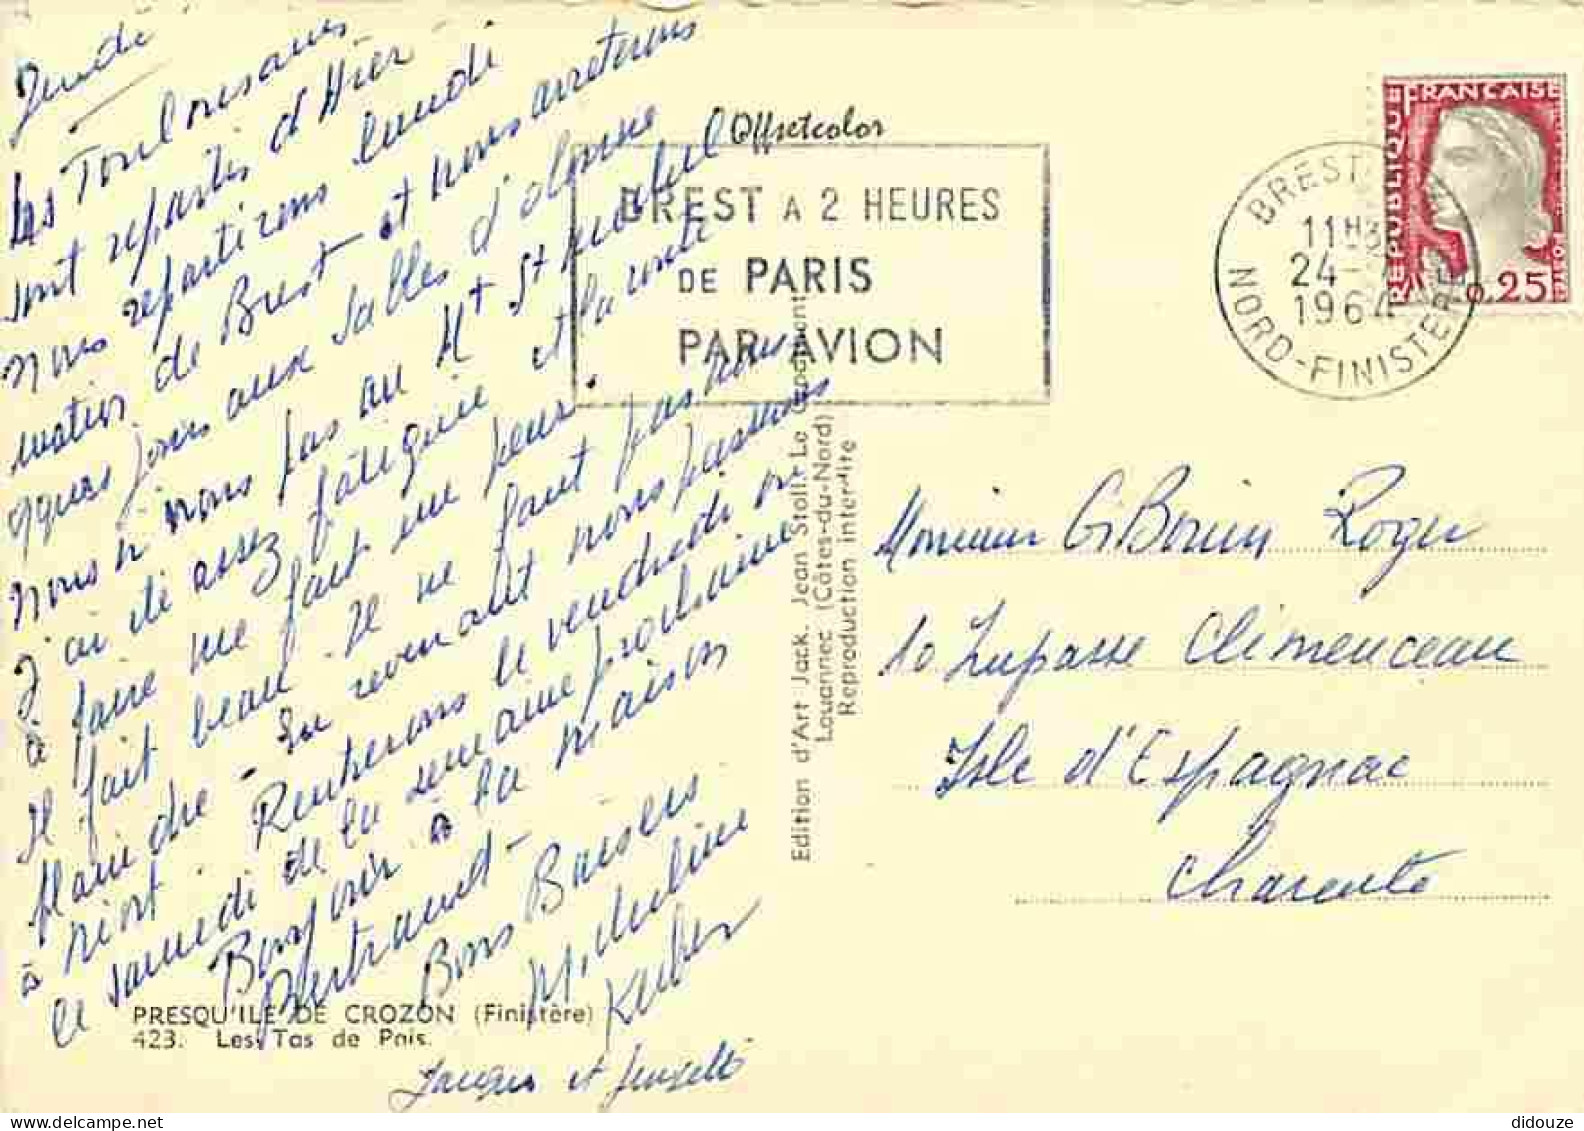 Jeudi
Les Toulousains
sont repartis d'Hier
nous repartirons lundi
matin de Brest et nous arreterons
qques jours aux Salles d'olonne
nous n'irons pas au Mt St Michel
j'ai été assez fatiguée et la route
à faire me fait un peu peur.
Il fait beau. Il ne faut pas nous
plaindre - En revenant nous passerons
à Niort. Rentrerons le vendredi ou
le samedi de la semaine prochaine
Bonjour à la maison
Bertrand -
Bons Baisers
Micheline
Kleber
Jacques et
PRESQU'ILE DE CROZON (Finistère)
423. Les Tas de Pois.
Offsetcolor
BREST A 2 HEURES
DE PARIS
PAR AVION
Edition d'Art Jack. Jean Stoll. Le
Louannec (Côtes-du-Nord)
Reproduction interdite
BREST
11H
24
1964
NORD-FINISTERE
REPUBLIQUE FRANCAISE
0,25
Monsieur Roger
10 Impasse Clémenceau
Isle d'Espagnac
Charente
didouze